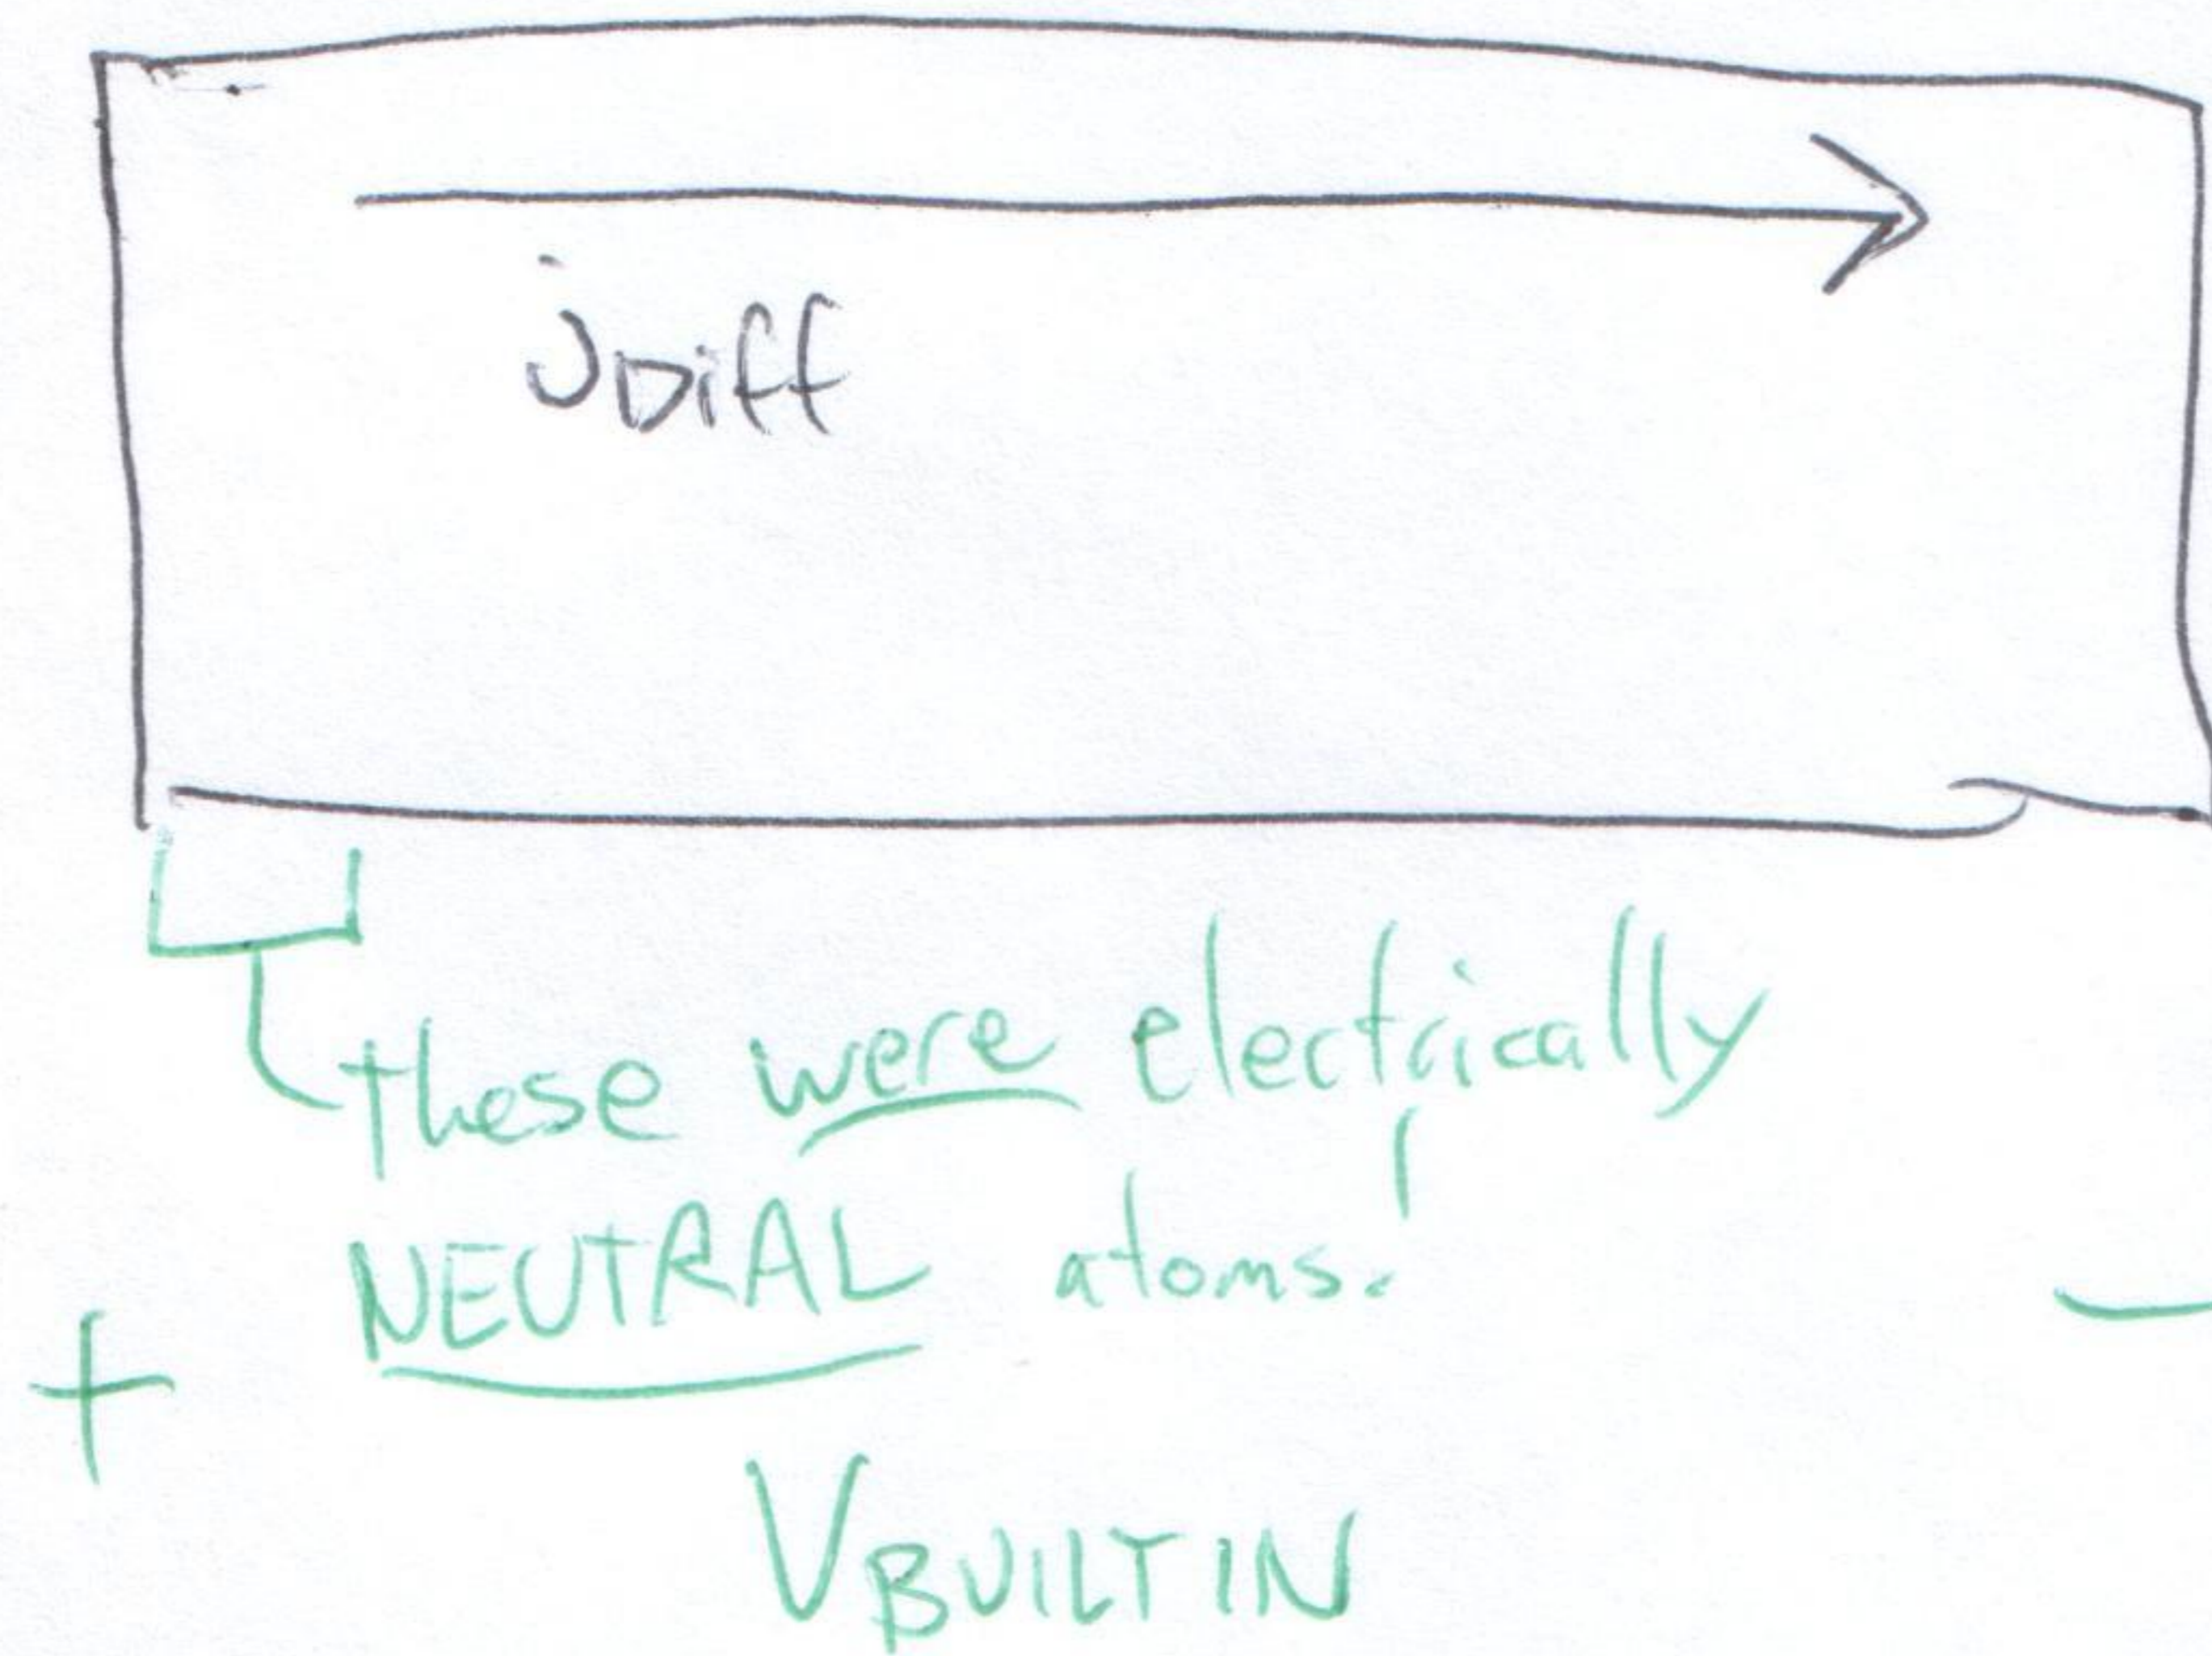 jDiff
these were electrically
NEUTRAL atoms!
+ −
VBUILTIN